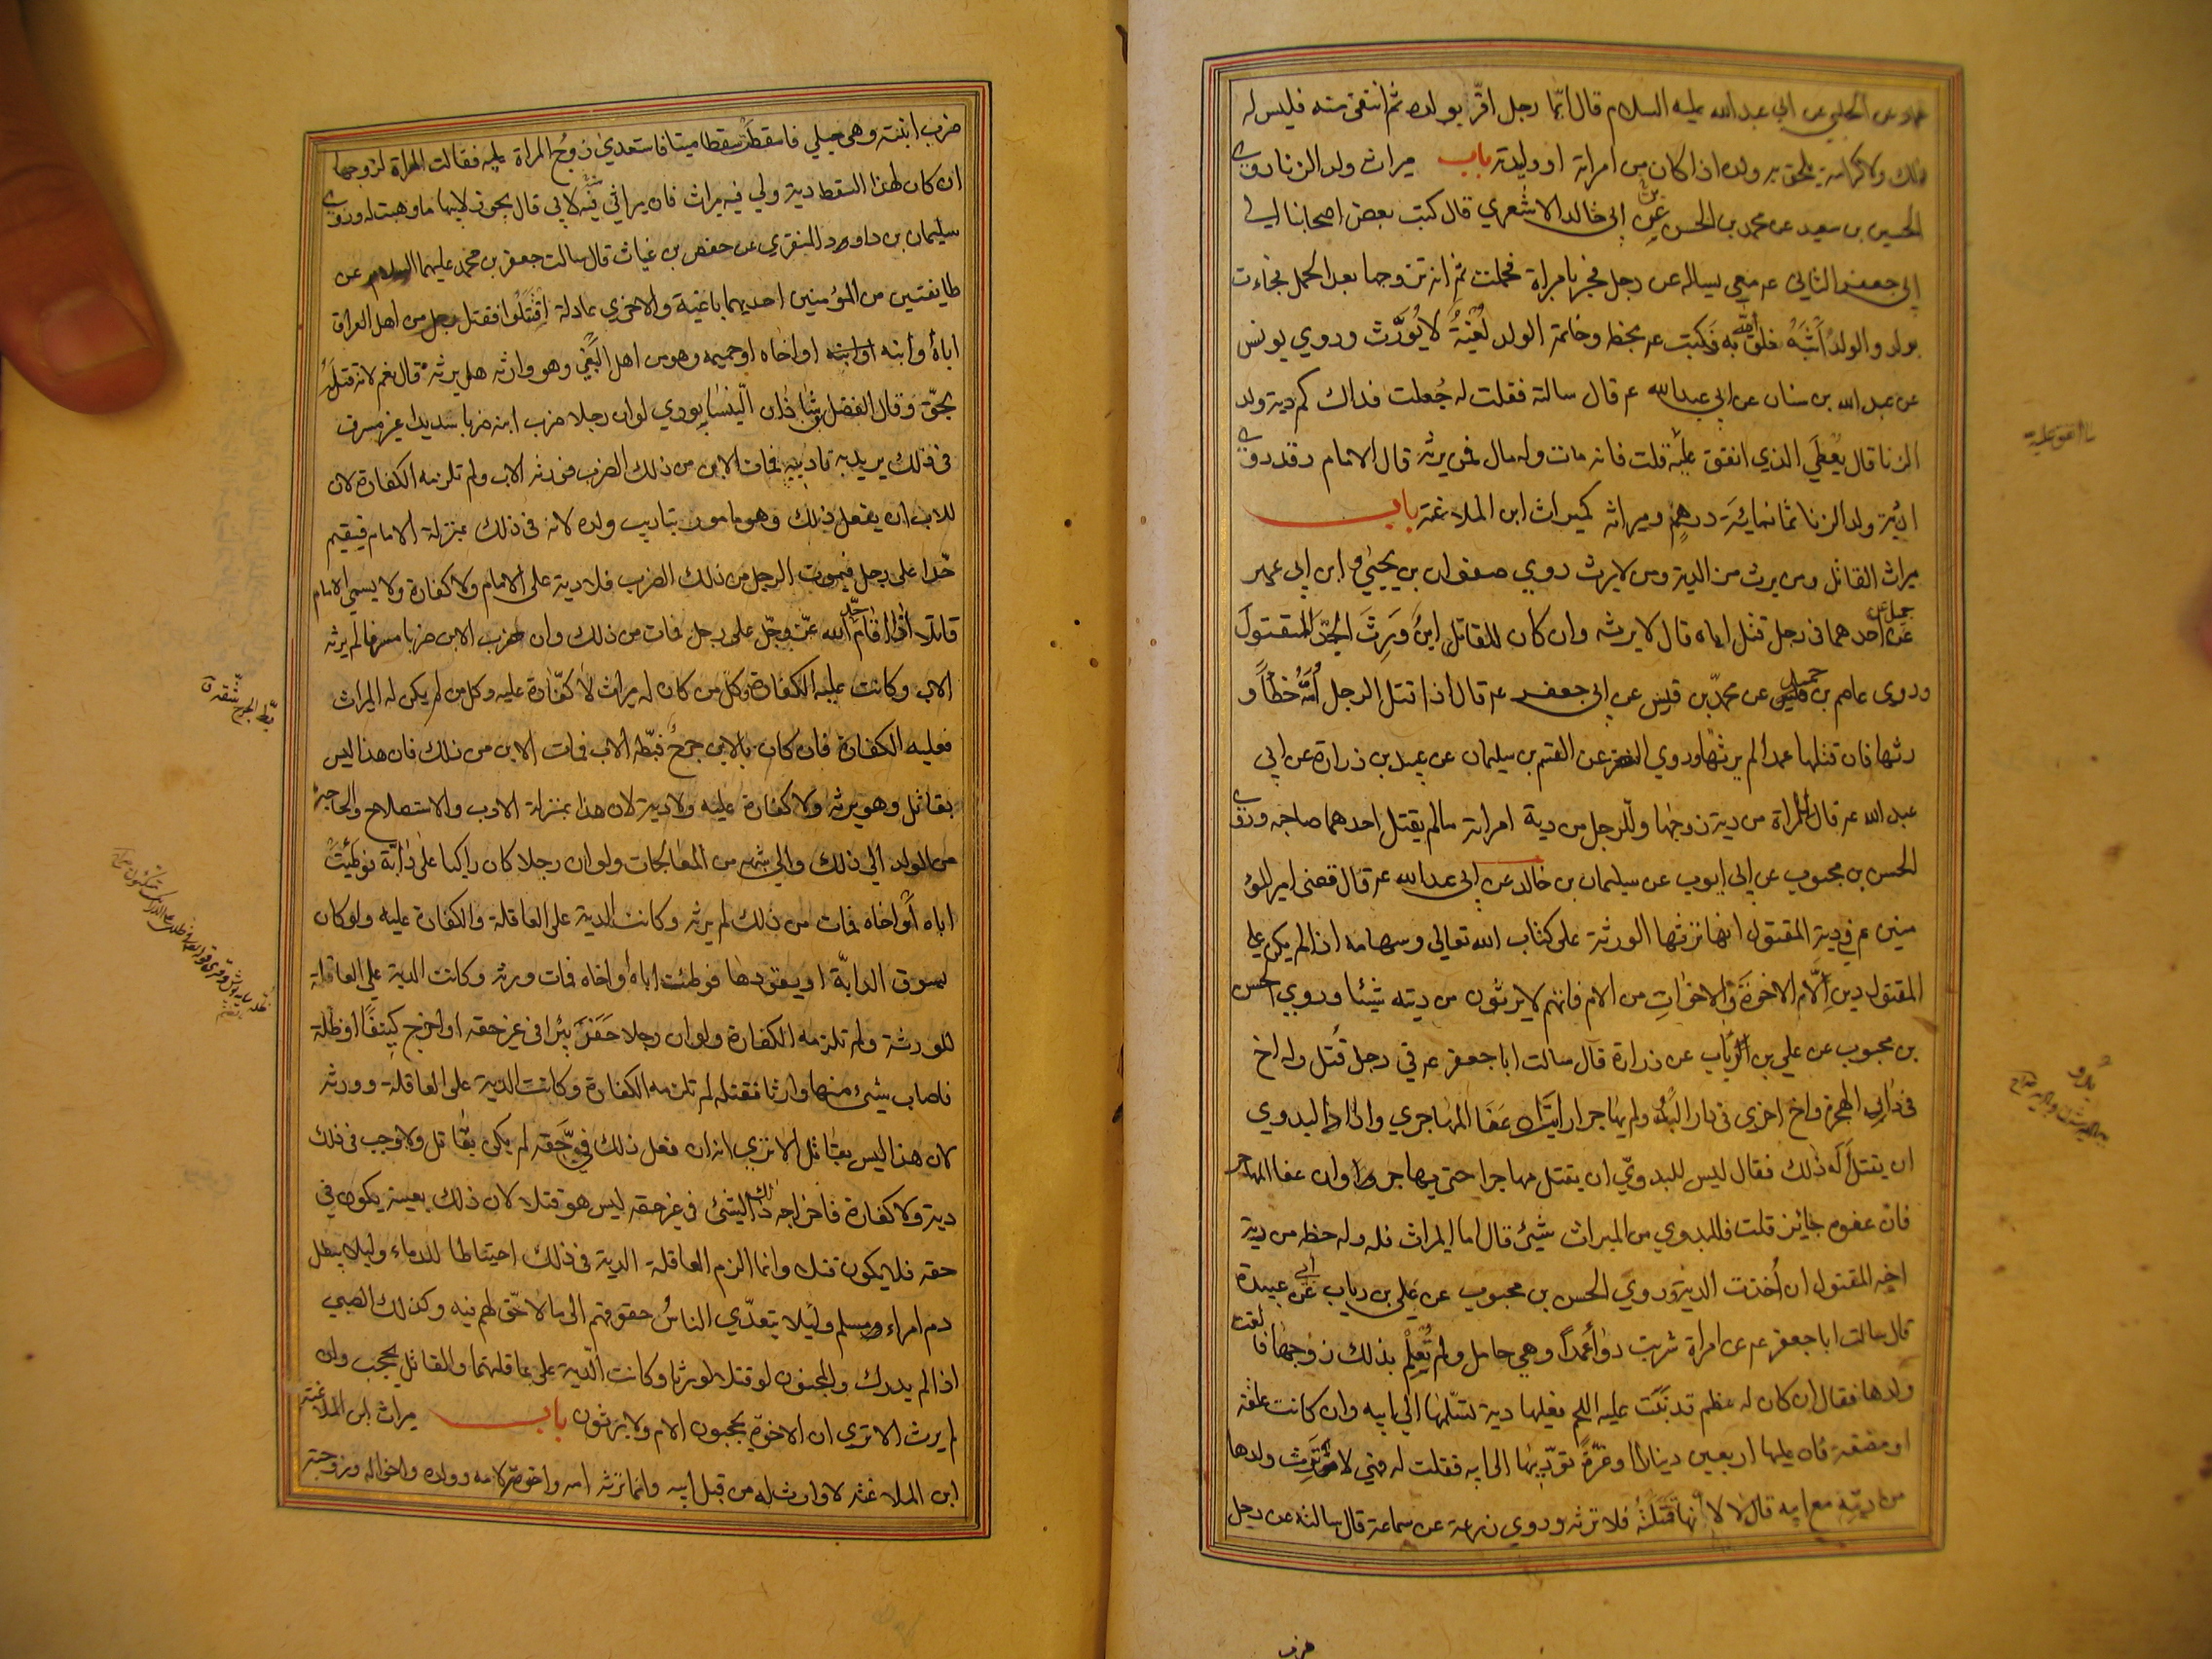 عن الحلبي عن ابي عبد الله عليه السلام قال ايّما رجل اقرّ بولده ثم انتفى منه فليس له
ذلك ولا كرامة يلحق به ولده اذا كان من امراته او وليدته باب ميراث ولد الزنا روى
الحسين بن سعيد عن محمد بن الحسن بن ابي خالد الاشعري قال كتب بعض اصحابنا الى
ابي جعفر الثاني ع معي يساله عن رجل فجر بامراة فحملت ثم انه تزوجها بعد الحمل فجاءت
بولد والولد اشبه خلق الله به فكتب ع بخطه وخاتمه الولد لغيّة لا يورّث وروي يونس
عن عبد الله بن سنان عن ابي عبد الله ع قال سالته فقلت له جُعلت فداك كم دية ولد
الزنا قال يُعطى الذي انفق عليه قلت فانه مات وله مال فمن يرثه قال الامام وقد روي
ان دية ولد الزنا ثمانمائة درهم وميراثه كميراث ابن الملاعنة باب
ميراث القاتل ومن يرث من الدية ومن لا يرث روي صفوان بن يحيى و ابن ابي عمير
عن جميل عن احدهما في رجل قتل اباه قال لا يرثه وان كان للقاتل ابن ورث الجدّ المقتول
وروى عاصم بن حميد عن محمد بن قيس عن ابي جعفر ع قال اذا قتل الرجل امّه خطأً و
رثها فان قتلها عمدا لم يرثها وروي النضر عن القسم بن سليمان عن عبيد بن زرارة عن ابي
عبد الله ع قال للمراة من دية زوجها وللرجل من دية امراته مالم يقتل احدهما صاحبه وروى
الحسن بن محبوب عن ابي ايوب عن سليمان بن خالد عن ابي عبد الله ع قال قضى امير المؤ
منين ع في دية المقتول انها ترثها الورثة على كتاب الله تعالى وسهامه اذا لم يكن على
المقتول دين الّا الاخوة والاخوات من الام فانهم لا يرثون من ديته شيئا وروي الحسن
بن محبوب عن علي بن رياب عن زرارة قال سالت ابا جعفر ع في رجل قُتل وله اخ
في دار الهجرة واخ اخرى في دار البدو ولم يهاجر ارايتك عفا المهاجري واراد البدوي
ان يقتل أله ذلك فقال ليس للبدويّ ان يقتل مهاجرا حتى يهاجر وان عفا المهاجر
فان عفوه جائز قلت فللبدوي من الميراث شيئ قال اما الميراث فله وله حظه من دية
اخيه المقتول ان أُخذت الدية وروي الحسن بن محبوب عن علي بن رياب عن ابي عبيدة
قال سالت ابا جعفر ع عن امراة شربت دواً عمداً وهي حامل ولم تُعلِم بذلك زوجها فالقت
ولدها فقال ان كان له عظم قد نبت عليه اللحم فعليها دية تسلّمها الى ابيه وان كانت علقة
او مضغة فان عليها اربعين دينارا او غرّة تؤدّيها الى ابيه فقلت له فهي لا ترث ولدها
من ديته مع ابيه قال لا لانها قتلته فلا ترثه وروي زرعة عن سماعة قال سالته عن رجل
ضرب
ضرب ابنته وهي حبلى فاسقطت سقطا ميتا فاستعدي زوج المراة عليه فقالت المراة لزوجها
ان كان لهذا السقط دية ولي فيه ميراث فان ميراثي فيه لابي قال يجوز لابيها ما وهبت له وروى
سليمان بن داود المنقري عن حفص بن غياث قال سالت جعفر بن محمد عليهما السلام عن
طايفتين من المؤمنين احديهما باغية والاخرى عادلة اقتتلوا فقتل رجل من اهل العراق
اباه وابنه او اخاه او حميمه وهو من اهل البغي وهو وارثه هل يرثه قال نعم لانه قتله
بحقّ وقال الفضل بن شاذان النيسابوري لو ان رجلا ضرب ابنه ضربا شديدا غير مسرف
في ذلك يريد به تاديبه فمات الابن من ذلك الضرب فورثه الاب ولم تلزمه الكفارة لان
للاب ان يفعل ذلك وهو مامور بتاديب ولده لانه في ذلك بمنزلة الامام فيقيم
حدّا على رجل فيموت الرجل من ذلك الضرب فلا دية على الامام ولا كفارة ولا يسمى الامام
قاتلا اذا اقام حدّ الله عزّ وجلّ على رجل فمات من ذلك وان ضرب الابن ضربا مسرفا لم يرثه
الاب وكانت عليه الكفارة وكل من كان له ميراث لا كفّارة عليه وكل من لم يكن له الميراث
فعليه الكفارة فان كان بالابن جرحٌ فبطّه الاب فمات الابن من ذلك فان هذا ليس
بقاتل وهو يرثه ولا كفارة عليه ولا دية لان هذا بمنزلة الادب والاستصلاح والحاجة
من الولد الى ذلك والى شبهه من المعالجات ولو ان رجلا كان راكبا على دابّة فوطئت
اباه او اخاه فمات من ذلك لم يرثه وكانت الدية على العاقلة والكفارة عليه ولو كان
يسوق الدابّة او يقودها فوطئت اباه واخاه فمات ورثه وكانت الدية على العاقلة
للورثة ولم تلزمه الكفارة ولو ان رجلا حفر بئرا في غير حقه او اخرج كنيفًا او ظلّة
فاصاب شيئ منها وارثا فقتله لم تلزمه الكفارة وكانت الدية على العاقلة وورثه
لان هذا ليس بقاتل الا ترى انه ان فعل ذلك في حقه لم يكن بقاتل ولا وجب في ذلك
دية ولا كفارة فاخراجه ذلك الشئ في غير حقه ليس هو قتلا لان ذلك بعينه يكون في
حقه فلا يكون قتلا وانما الزم العاقلة الدية في ذلك احتياطا للدماء وليلا يبطل
دم امراء مسلم وليلا يتعدّى الناس حقوقهم الى ما لا حقّ لهم فيه وكذلك الصبي
اذا لم يدرك والمجنون لو قتلا لورثا وكانت الدّية على عاقلتهما والقاتل يحجب وان
لم يرث الا ترى ان الاخوة يحجبون الام ولا يرثون باب ميراث ابن الملاعنة
ابن الملاعنة لا وارث له من قبل ابيه وانما ترثه امه واخوته لامه وولده واخواله وزوجته
بطّ الجرح شقه ق